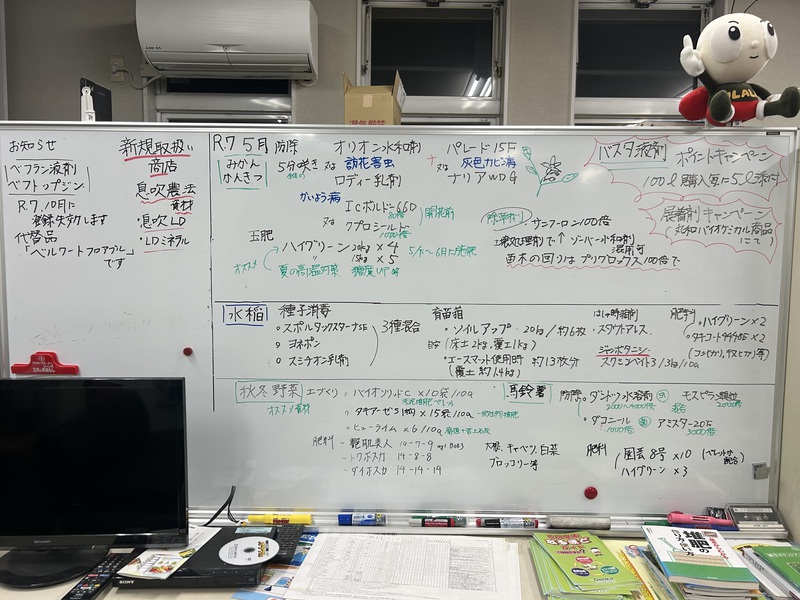 お知らせ
ベフラン液剤
ベフトップジン
R.7.10月に
登録失効します
代替品
「ベルクートフロアブル」
です
新規取扱い
商店
息吹農法
資材
・息吹LD
・LDミネラル
R.7 5月 防除
みかん
かんきつ
5分咲き
オリオン水和剤
又は 訪花害虫
ロディー乳剤
+
パレード15F
又は 灰色カビ病
ナリアWDG
かいよう病
ICボルドー66D
80倍
又は
クプロシールド
1000倍
開花前
玉肥
ハイグリーン 20kg × 4
〃 15kg × 5
5/下~6月に施肥
オススメ
夏の高温対策 糖度UP等
除草剤
サンフーロン100倍
土壌処理剤で↑ゾーバー水和剤
混用可
苗木の回りはプリグロックス100倍で
バスタ液剤 ポイントキャンペーン
100ℓ購入毎に5ℓ添付
展着剤キャンペーン
水稲
種子消毒
○ スポルタックスターナSE
○ ヨネポン
○ スミチオン乳剤
3種混合
育苗箱
・ソイルアップ 20kg/約6枚
(床土2kg,覆土1kg)
・エースマット使用時 約13枚分
(覆土 約1.4kg)
・スタウトアレス
ジャンボタニシ
スクミンベイト3/3kg/10a
肥料
・ハイグリーン×2
秋冬野菜
オススメ資材
土づくり
・バイオソリッドC ×10袋/10a
・タキアーゼS(粒)×15袋/10a
・ヒューライム ×6/10a
肥料
・艶肌美人 10-7-9
・トクホスカ 14-8-8
・ダイホスカ 14-14-14
大根、キャベツ、白菜
ブロッコリー等
馬鈴薯
防除
・ダントツ水溶剤
2000~4000倍
モスピラン顆粒
2000倍
・ダコニール
1000倍
アミスター20F
3000倍
肥料
園芸8号×10
(ペレットが
配合)
ハイグリーン×3
SHARP
SONY
堆肥の
作り方・使い方